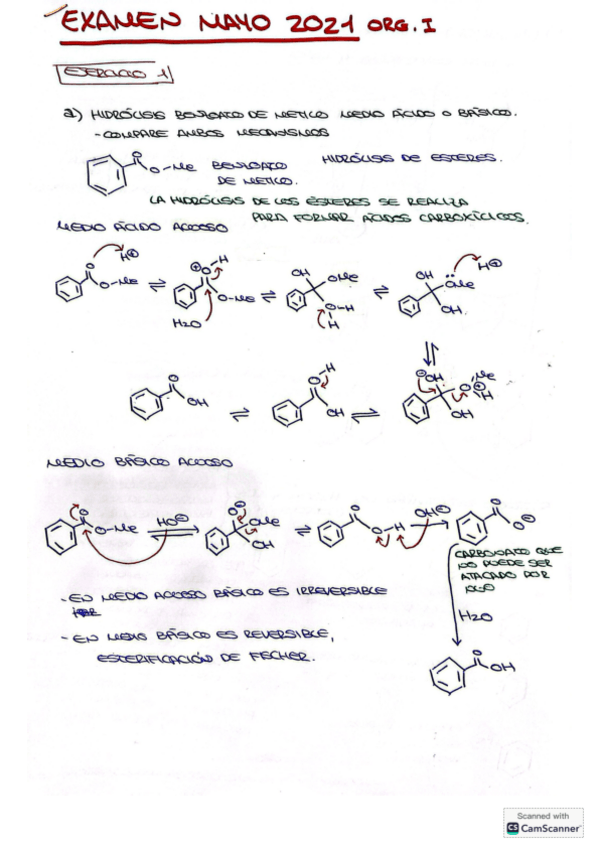 EXAMEN MAYO 2021 ORG. I
EJERCICIO 1
a) HIDRÓLISIS BENZOATO DE METILO MEDIO ÁCIDO O BÁSICO.
- COMPARE AMBOS MECANISMOS
O
O-Me BENZOATO
DE METILO.
HIDRÓLISIS DE ESTERES.
LA HIDRÓLISIS DE LOS ÉSTERES SE REALIZA
PARA FORMAR ÁCIDOS CARBOXÍLICOS.
MEDIO ÁCIDO ACUOSO
O H⊕ O-Me ⇌ ⊕O-H O-Me H2O ⇌ OH OMe O-H H ⇌ OH OMe OH H⊕
⇌
O OH ⇌ O H OH ⇌ OH O Me ⊕ H OH
MEDIO BÁSICO ACUOSO
O O-Me HO⊖ O⊖ OMe OH ⇌ O O-H OH⊖ O O⊖
CARBOXILATO QUE
NO PUEDE SER
ATACADO POR
H2O
- EN MEDIO ACUOSO BÁSICO ES IRREVERSIBLE
- EN MEDIO BÁSICO ES REVERSIBLE,
ESTERIFICACIÓN DE FECHER.
O OH
Scanned with
CS CamScanner